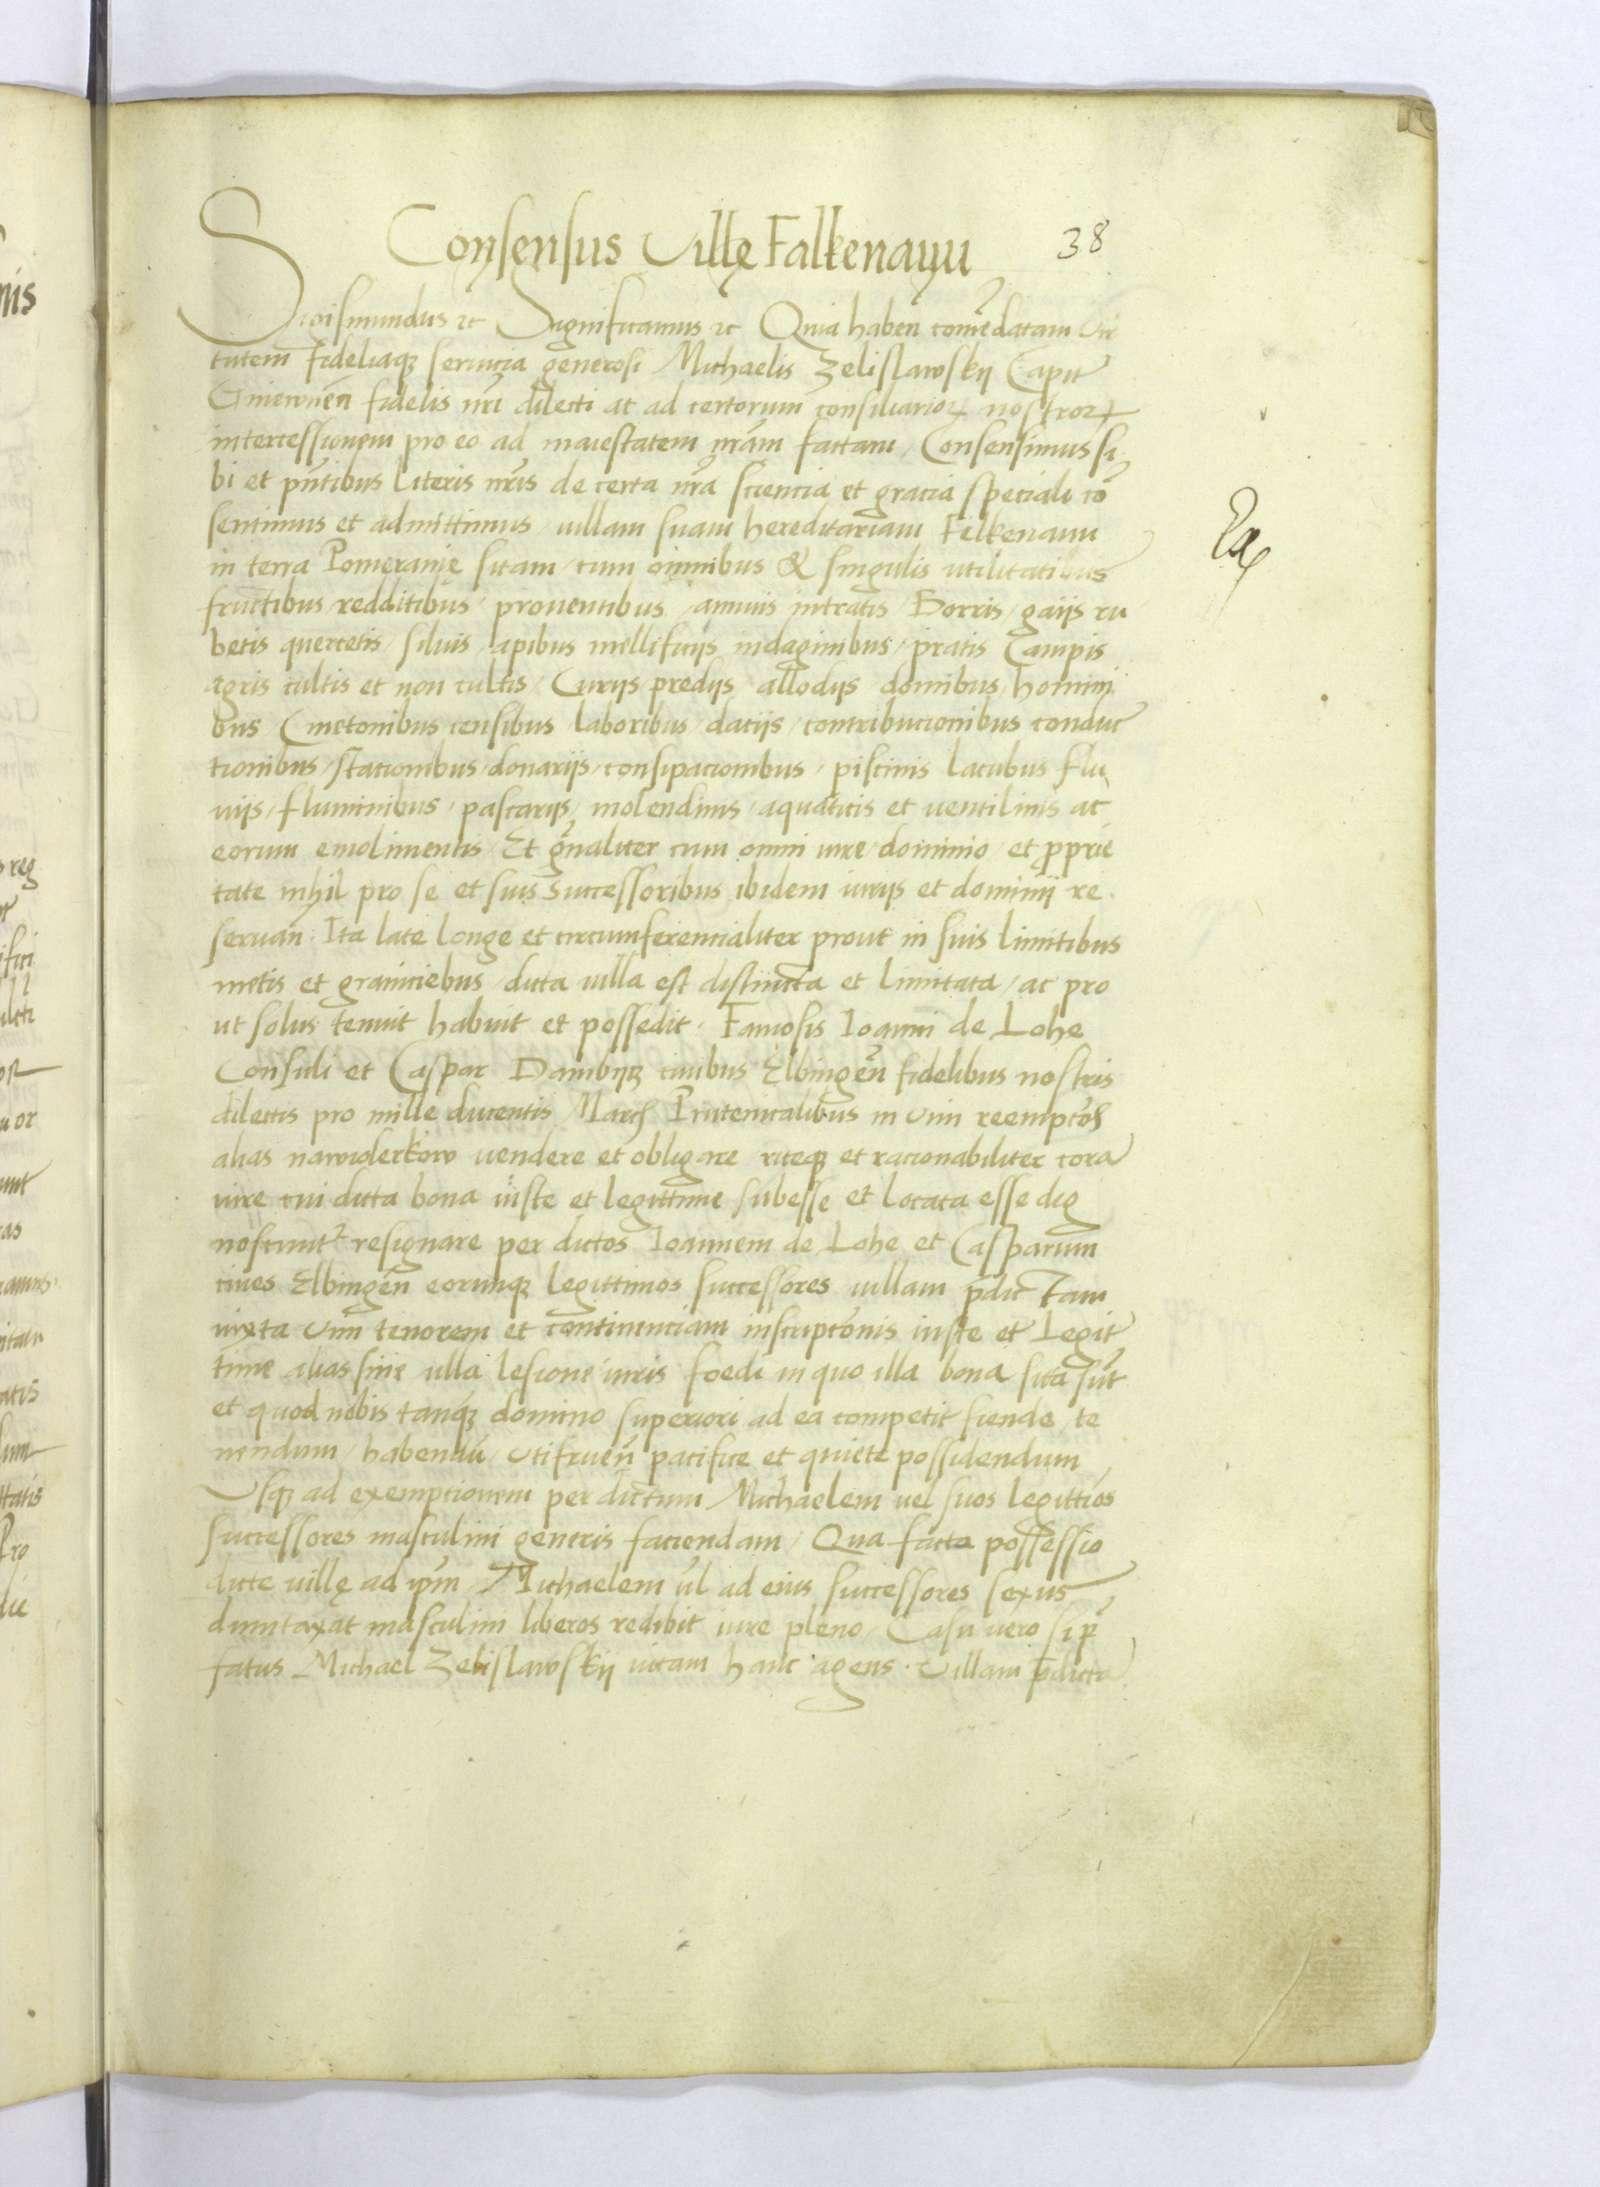 Consensus Villę Falkenauu
38
Sigismundus etc Significamus etc Quia haben comedatam Vir
tutem fidelíaqz seruicia generosi Michaelis Zelislawskij Capit
Gniewnen fidelis nri dilecti ac ad certorum consiliarioꝝ nostroꝝ
intercessionem pro eo ad maiestatem nram factam / Consensimus si
bi et pntibus literis nris de certa nra sciencia et gracia speciali co
sentimus et admittimus / uillam suam hereditariam Felkenauu
in terra Pomeranie sitam / cum omnibus & singulis utilitatibus
fructibus redditibus / prouentibus / annuis intratis / Borris / gaijs ru
betis quercetis / siluis / apibus mellificijs indaginibus / pratis Campis
agris cultis et non cultis / Curijs predijs / allodijs / domibus / homini
bus Cmetonibus censibus laboribus / datijs / contribucionibus conduc
tionibus / stacionibus / donarijs / consipacionibus / piscinis lacubus flu
uijs / fluminibus / pascarijs / molendinis / aquaticis et uentilinis ac
eorum emolimentis / Et gnaliter cum omni iure / dominio / et proprie
tate nihil pro se et suis successoribus ibidem iurijs et dominij re
seruan . Ita late longe et circumferencialiter prout in suis limitibus
metis et graniciebus / dicta uilla est distincta et limitata / ac pro
ut solus tenuit habuit et possedit . Famosis Ioanni de Lohe
Consuli et Caspar Dambijtz ciuibus Elbingen fidelibus nostris
dilectis pro mille ducentis March Prutenicalibus in uim reempto
alias nawiderkow uendere et obligare riteqz et racionabiliter cora
iure cui dicta bona iuste et legittime subesse et locata esse dig
noscunt resignare per dictos Ioannem de Lohe et Casparum
ciues Elbingen eorumqz legittimos successores uillam pdictam
iuxta uim tenorem et continenciam inscriptonis iuste et Legit
time alias sine ulla lesione iuris foedi in quo illa bona sita sut
et quod nobis tanqz domino superiori ad ea competit siende / te
nendum / habendu / utifruen pacifice et quiete possidendum
Usqz ad exempcionem per dictum Michaelem uel suos legittios
successores masculini generis faciendam / Qua facta possessio
dicte uillę ad ipm Michaelem ul ad eius successores sexus
dumtaxat masculini liberos redibit iure pleno / Casu uero si p
fatus Michael Zelislawskij uitam hanc agens . uillam pdicta